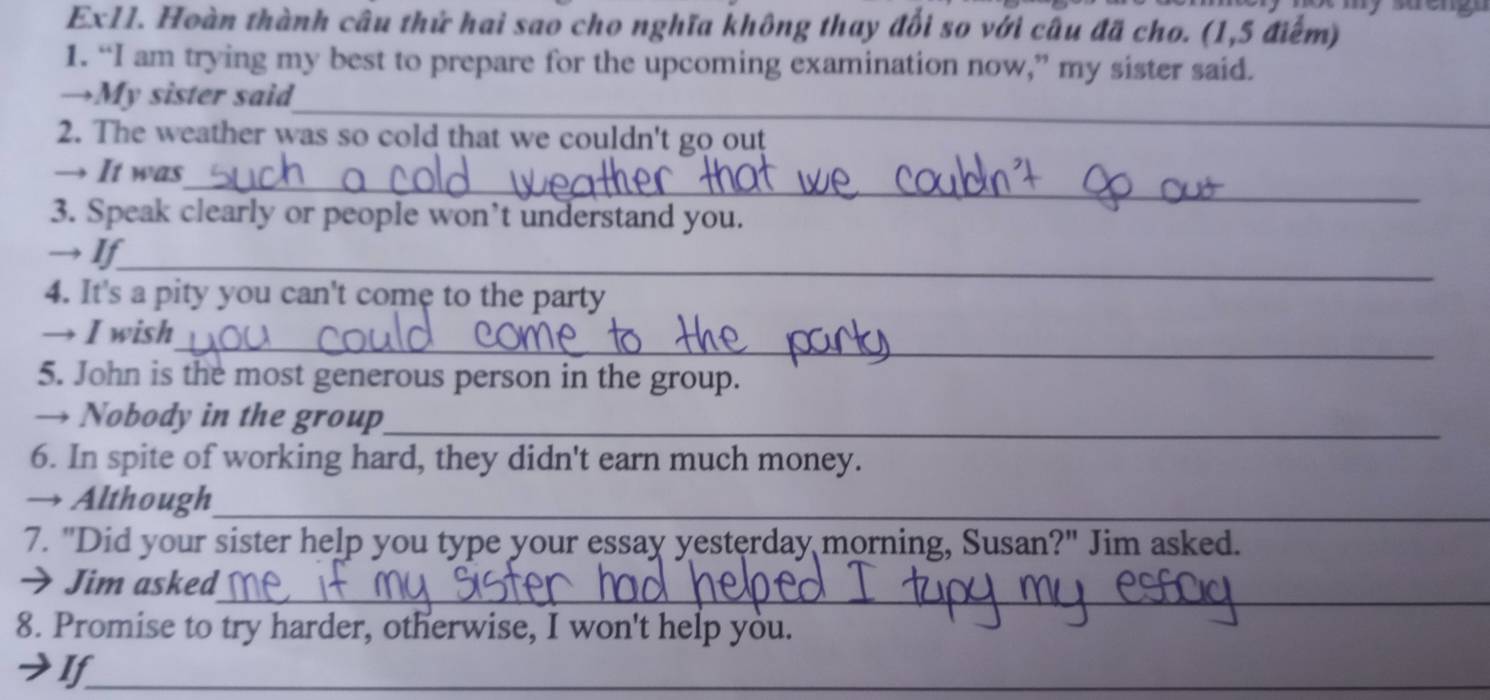 Ex11. Hoàn thành câu thứ hai sao cho nghĩa không thay đổi so với câu đã cho. (1,5 điểm)
1. “I am trying my best to prepare for the upcoming examination now,” my sister said.
→My sister said
2. The weather was so cold that we couldn't go out
→ It was such a cold weather that we couldn't go out
3. Speak clearly or people won’t understand you.
→ If
4. It's a pity you can't come to the party
→ I wish you could come to the party
5. John is the most generous person in the group.
→ Nobody in the group
6. In spite of working hard, they didn't earn much money.
→ Although
7. "Did your sister help you type your essay yesterday morning, Susan?" Jim asked.
→ Jim asked me if my sister had helped I typy my essay
8. Promise to try harder, otherwise, I won't help you.
→ If